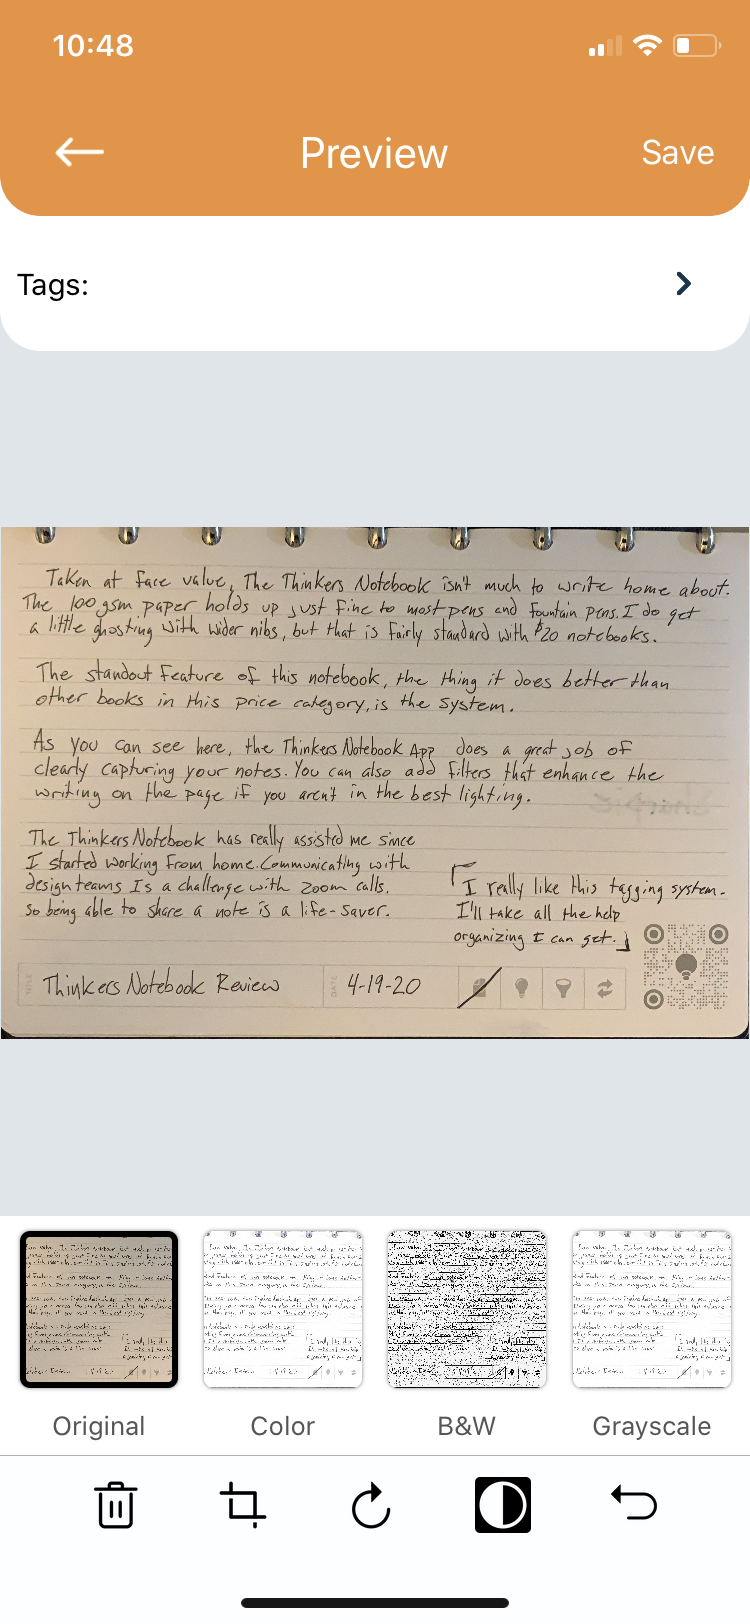 10:48
Preview
Save
Tags:
Taken at face value, The Thinkers Notebook isn't much to write home about.
The 100gsm paper holds up just fine to most pens and fountain pens. I do get
a little ghosting with wider nibs, but that is fairly standard with $20 notebooks.
The standout feature of this notebook, the thing it does better than
other books in this price category, is the system.
As you can see here, the Thinkers Notebook App does a great job of
clearly capturing your notes. You can also add filters that enhance the
writing on the page if you aren't in the best lighting.
The Thinkers Notebook has really assisted me since
I started working from home. Communicating with
design teams Is a challenge with zoom calls,
so being able to share a note is a life-saver.
I really like this tagging system.
I'll take all the help
organizing I can get.
TITLE
Thinkers Notebook Review
DATE
4-19-20
Original
Color
B&W
Grayscale